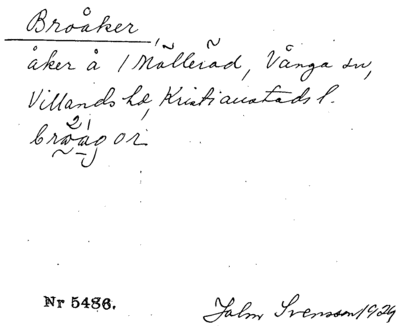 Broåker
åker å 1 Mällerød, Vånga sn,
Villands hd, Kristianstads l.
Nr 5486.
John Svensson 1929